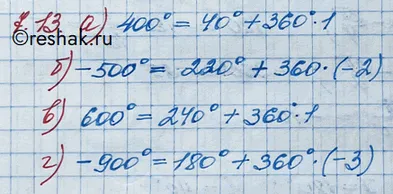 7.13 а) 400° = 40° + 360°·1
©reshak.ru
б) -500° = 220° + 360·(-2)
в) 600° = 240° + 360°·1
г) -900° = 180° + 360°·(-3)